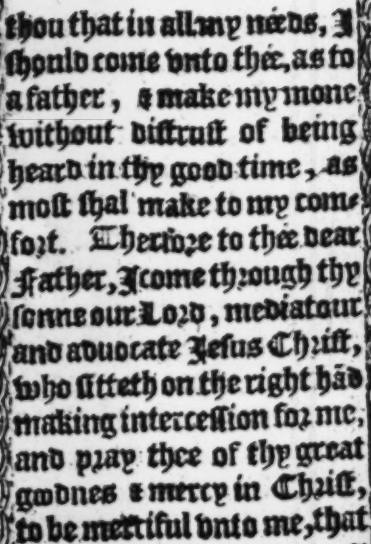 thou that in all my néeds, I
should come vnto thée, as to
a father, & make my mone
without distrust of being
heard in thy good time, as
most shal make to my com-
fort. Therfore to thée dear
Father, I come through thy
sonne our Lord, mediatour
and aduocate Jesus Christ,
who sitteth on the right hãd
making intercession for me,
and pray thee of thy great
goodnes & mercy in Christ,
to be merciful vnto me, that